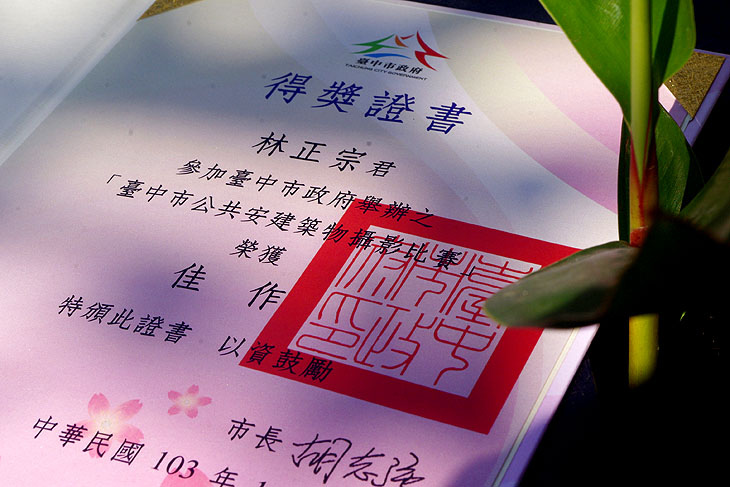 臺中市政府
TAICHUNG CITY GOVERNMENT
得獎證書
林正宗君
參加臺中市政府舉辦之
「臺中市公共安建築物攝影比賽」
榮獲
佳作
特頒此證書 以資鼓勵
市長 胡志強
中華民國 103 年 1